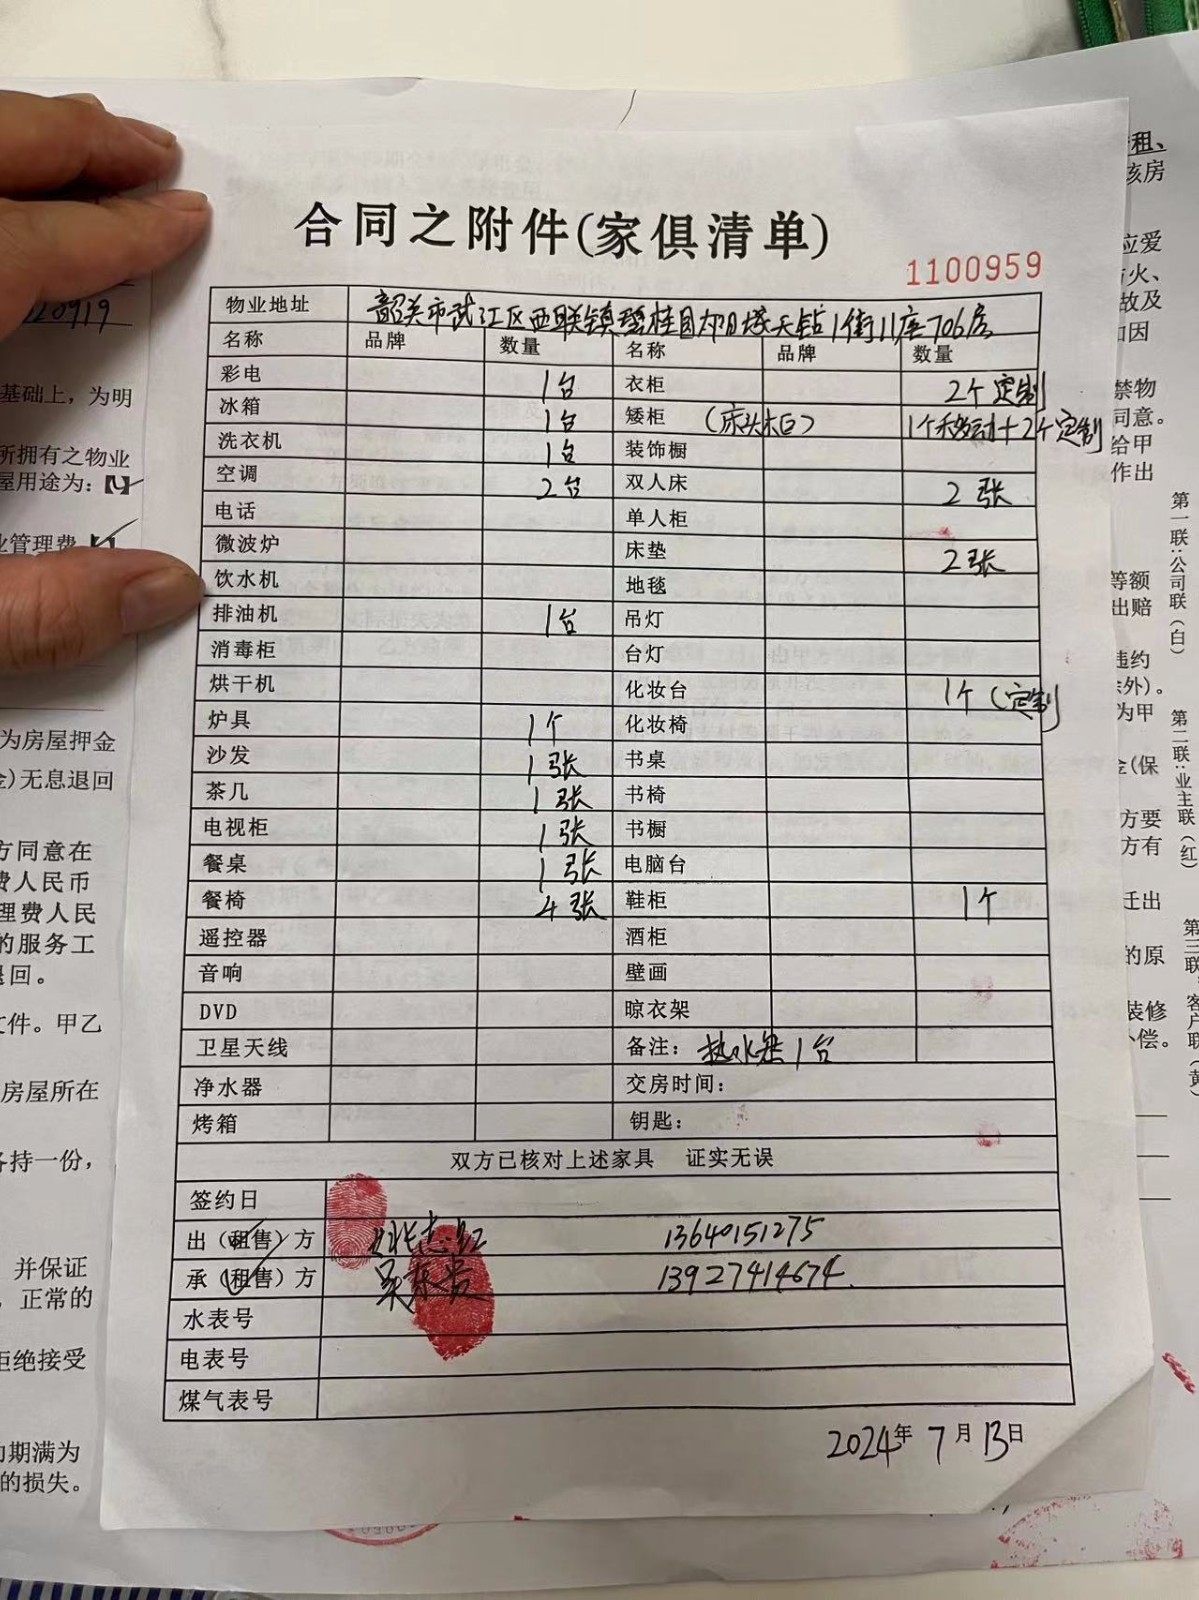 合同之附件(家俱清单)
1100959
物业地址 韶关市武江区西联镇碧桂园太阳城天钻1街11座706房
名称 品牌 数量 名称 品牌 数量
彩电 1台 衣柜 2个定制
冰箱 1台 矮柜 (床头柜) 1个移动+2个定制
洗衣机 1台 装饰橱
空调 2台 双人床 2张
电话 单人柜
微波炉 床垫 2张
饮水机 地毯
排油机 1台 吊灯
消毒柜 台灯
烘干机 化妆台 1个(定制
炉具 1个 化妆椅
沙发 1张 书桌
茶几 1张 书椅
电视柜 1张 书橱
餐桌 1张 电脑台
餐椅 4张 鞋柜 1个
遥控器 酒柜
音响 壁画
DVD 晾衣架
卫星天线 备注: 热水器1台
净水器 交房时间:
烤箱 钥匙:
双方已核对上述家具 证实无误
签约日
出(租售)方 志红 13640151275
承(租售)方 吴东贵 13927414674
水表号
电表号
煤气表号
2024年7月13日
第一联:公司联(白)
第二联:业主联(红)
第三联:客户联(黄)
20919
基础上,为明
所拥有之物业
屋用途为:【】
业管理费【】
为房屋押金
金)无息退回
方同意在
费人民币
理费人民
的服务工
退回。
文件。甲乙
房屋所在
各持一份,
并保证
,正常的
拒绝接受
期满为
的损失。
租、
该房
应爱
火、
故及
如因
禁物
同意。
给甲
作出
等额
出赔
违约
外)。
为甲
金(保
方要
方有
迁出
的原
装修
偿。